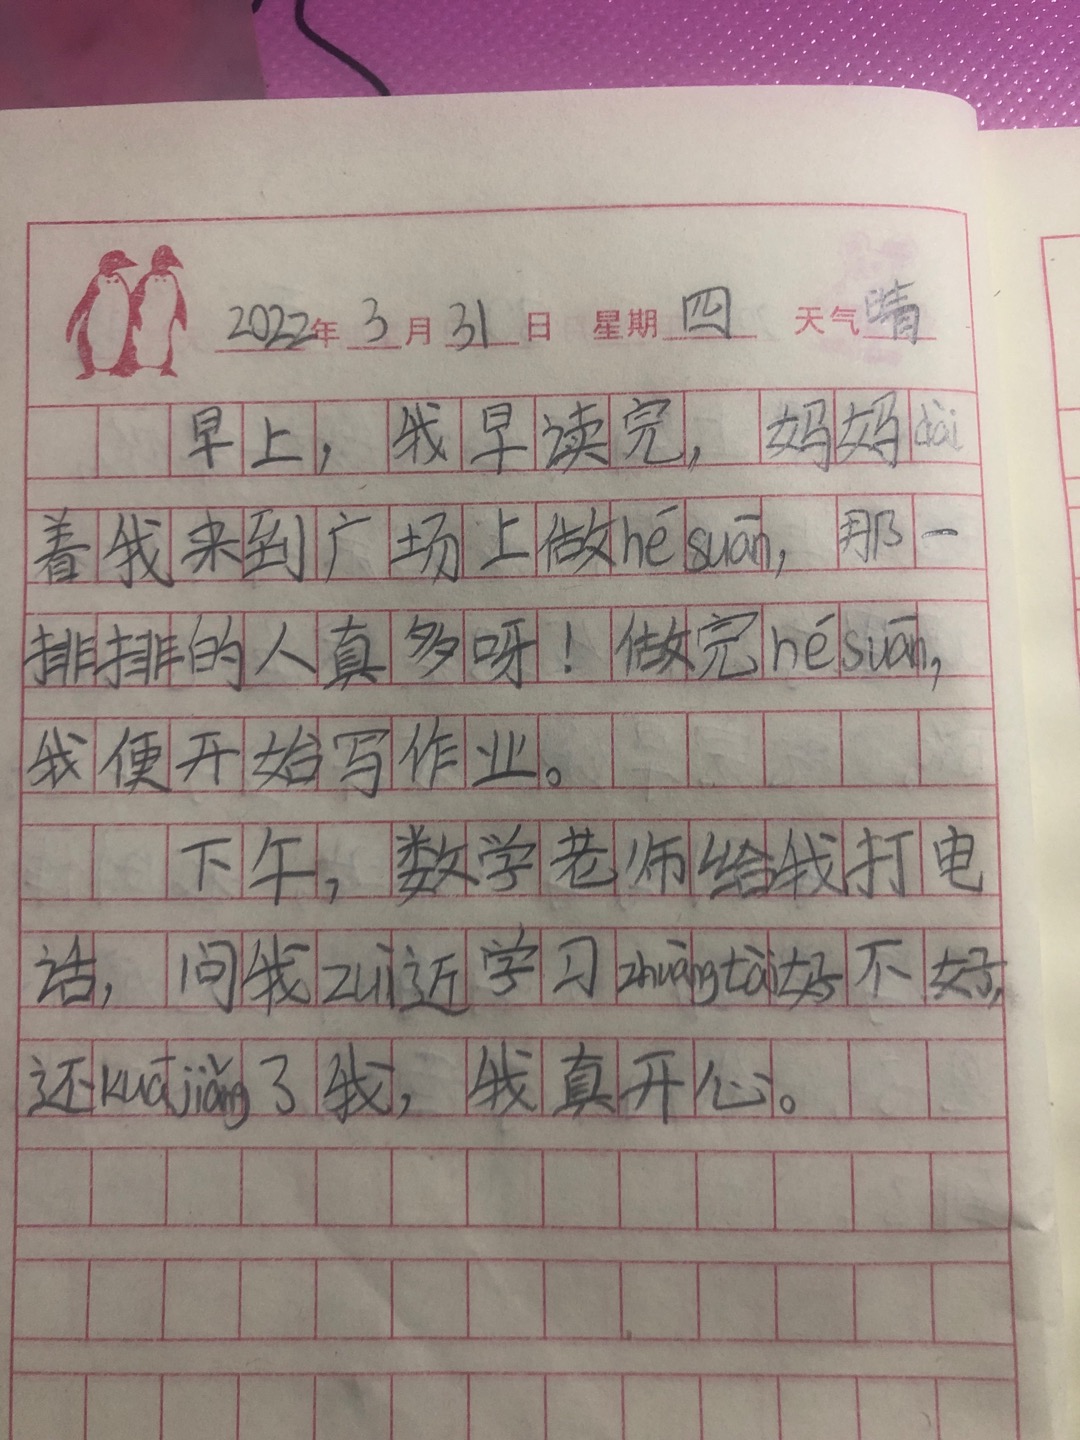 2022年3月31日 星期四 天气晴
早上，我早读完，妈妈dài
着我来到广场上做hé suān，那一
排排的人真多呀！做完hé suān，
我便开始写作业。
下午，数学老师给我打电
话，问我zuì近学习zhuàngtài好不好，
还kuājiǎng了我，我真开心。